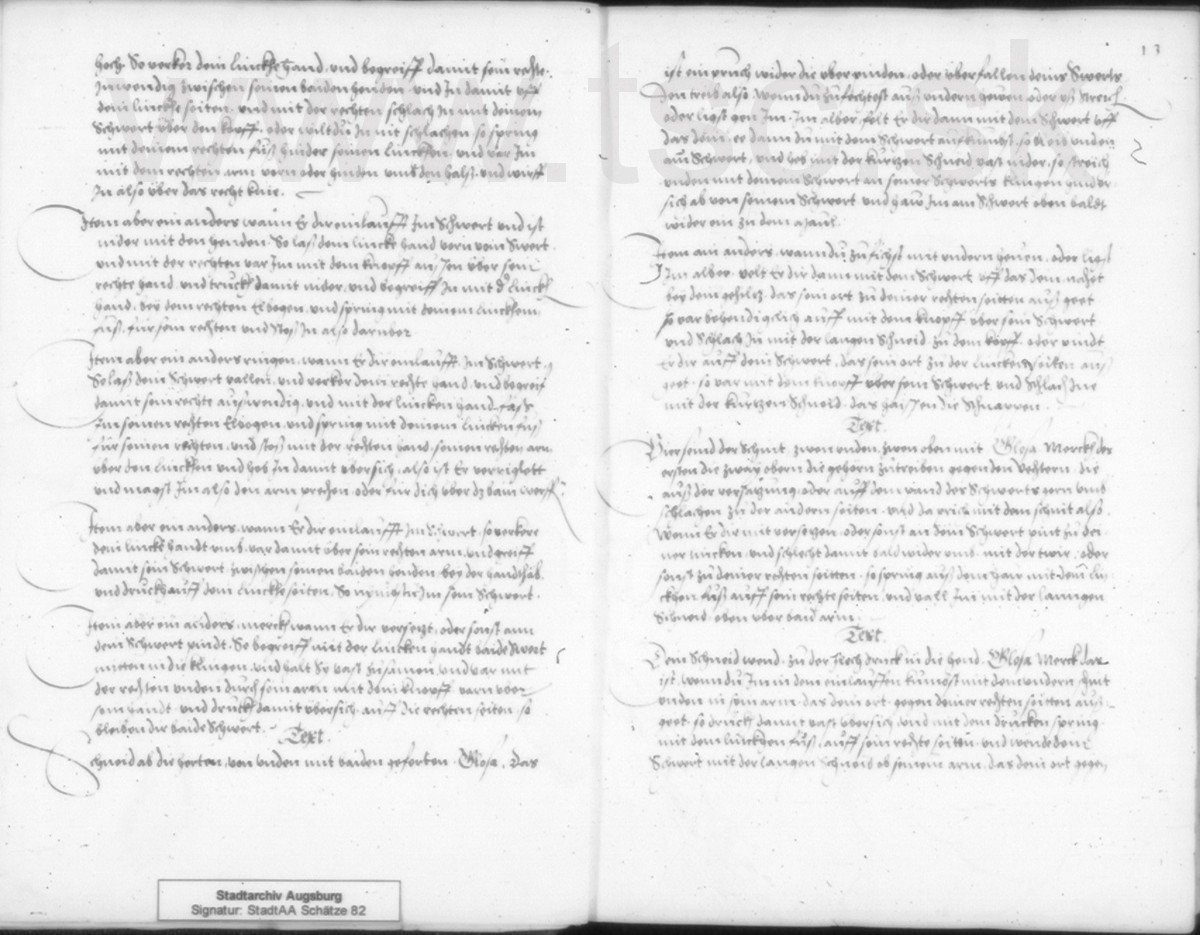 hoch. So verker dein lincke hand, vnd begreiff damit sein rechte
Inwendig zwischen seinen baiden henden vnd In damit vff
dein lincke seiten, vnd mit der rechten schlach In mit deinem
Schwert über den kopff, oder wiltdu In nit schlachen, so spring
mit deinem rechten fuß hinder seinen lincken, vnd var Im
mit dem rechten arm vorn oder hinden vmb den halß, vnd wirff
In also über das recht knie.
Item aber ein anders wann Er dir einlaufft Im Schwert vnd ist
nider mit den henden. So laß dein linck hand vorn vom Swert
vnd mit der rechten var Im mit dem knopff aussen über sein
rechte hand, vnd truck damit nider, vnd begreiff In mit der linck
hand, bey dem rechten Elbogen, vnd spring mit deinem lincken
fuß, für sein rechten vnd stos In also darüber
Item aber ein anders ringen, wann Er dir einlaufft Im Schwert,
So laß dein Schwert vallen, vnd verker dein rechte hand, vnd begreif
damit sein rechte außwendig, vnd mit der lincken hand fass
Im seinen rechten Elbogen, vnd spring mit deinem lincken fuß
für seinen rechten, vnd stos mit der rechten hand, seinen rechten arm
über den lincken vnd heb In damit übersich, also ist Er verriglett
vnd magst Im also den arm prechen, oder für dich über dz bain werff
Item aber ein anders, wann Er dir einlaufft Im Schwert, so verkere
dein linck handt vmb, var damit über sein rechten arm, vnd greiff
damit sein Schwert, zwischen seinen baiden henden, bey der handthab
vnd druckh auff dein lincke seiten, So nymstu Im sein Schwert.
Item aber ein anders, merck wann Er dir versetzt, oder sonst ann
dein Schwert pindt, So begreiff mit der lincken handt baide Swert
mitten in die klingen, vnd halt Sy vast zusamen, vnd var mit
der rechten vnden durch sein arm mit dem knopff, vorn über
sein handt, vnd druck damit übersich, auff die rechten seiten, so
bleiben dir baide Schwert.
Text.
Schneid ab die herten, von vnden mit baiden geferten. Glosa. Das
13
ist ein pruch wider die überpinden, oder überfallen deins Swerts
Den treib also, wenn du zufechtest auß vndern hewen, oder vß streich
oder ligst gen Im, Im alber, felt Er dir dann mit dem Schwert vff
das dein, ee dann du mit dem Schwert auf kumbst, so bleib vnden
am Schwert, vnd heb mit der kurtzen Schneid vast vider, so streich
vnden mit deinem Schwert an seiner Schwerts klingen hinder
sich ab von seinem Schwert, vnd haw Im am Schwert oben baldt
wider ein zu dem maul.
Item ain anders, wann du zufichst mit vndern hewen, oder ligst
Im alber, velt Er dir dann mit dem Schwert, vff das dein, nahet
bey dem gehiltz, das sein ort zu deiner rechten seitten auß geet
so var behendigclich auff mit dem knopff über sein Schwert
vnd Schlach In mit der langen schneid zu dem kopff, oder pindt
Er dir auff dein Schwert, das sein ort zu der lincken seiten auß
geet, so var mit dem knopff über sein Schwert, vnd schlach Ine
mit der kurtzen schneid, das haissen die schnarren.
Text.
Vier send der Schnit, zwen vnden, zwen oben mit. Glosa. Merck des
ersten die zway obern die gehorn zutreiben gegen den vechtern, die
auß der versatzung, oder auff dem pand des Schwerts gern vmb
schlachen zu der andern seiten, vnd da prich mit dem schnit also
Wann Er dir mit versetzen, oder sonst an dein Schwert pint zu dei-
ner lincken, vnd schlecht damit bald wider vmb, mit der twir, oder
sonst zu deiner rechten seitten, so spring auß dem haw mit dem lin-
cken fuß auff sein rechte seiten, vnd vall Im mit der lanngen
schneid, oben über baid arm.
Text.
Dein Schneid wend, zu der flech druck in die hend. Glosa. Merck das
ist, wenn du Im in dem einlauffen kumbst mit dem vndern schnit
vnden in sein arm, das dein ort, gegen deiner rechten seitten auß
geet, so druck damit vast übersich, vnd mit dem drucken spring
mit dem lincken fuß, auff sein rechte seitten, vnd wende dein
Schwert mit der langen schneid ob seinem arm, das dein ort gegen
Stadtarchiv Augsburg
Signatur: StadtAA Schätze 82
www.tsc.sk